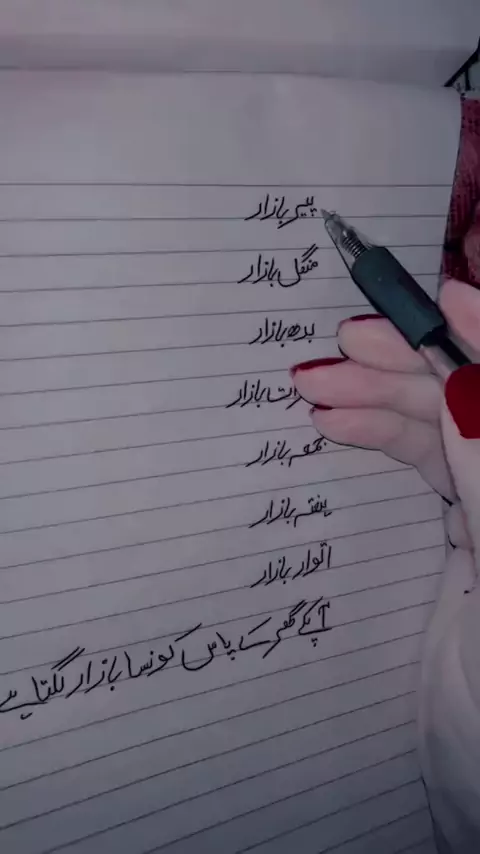 پیر بازار
منگل بازار
بدھ بازار
بازار
جمعہ بازار
ہفتہ بازار
اتوار بازار
آپکے گھر کے پاس کونسا بازار لگتا ہے